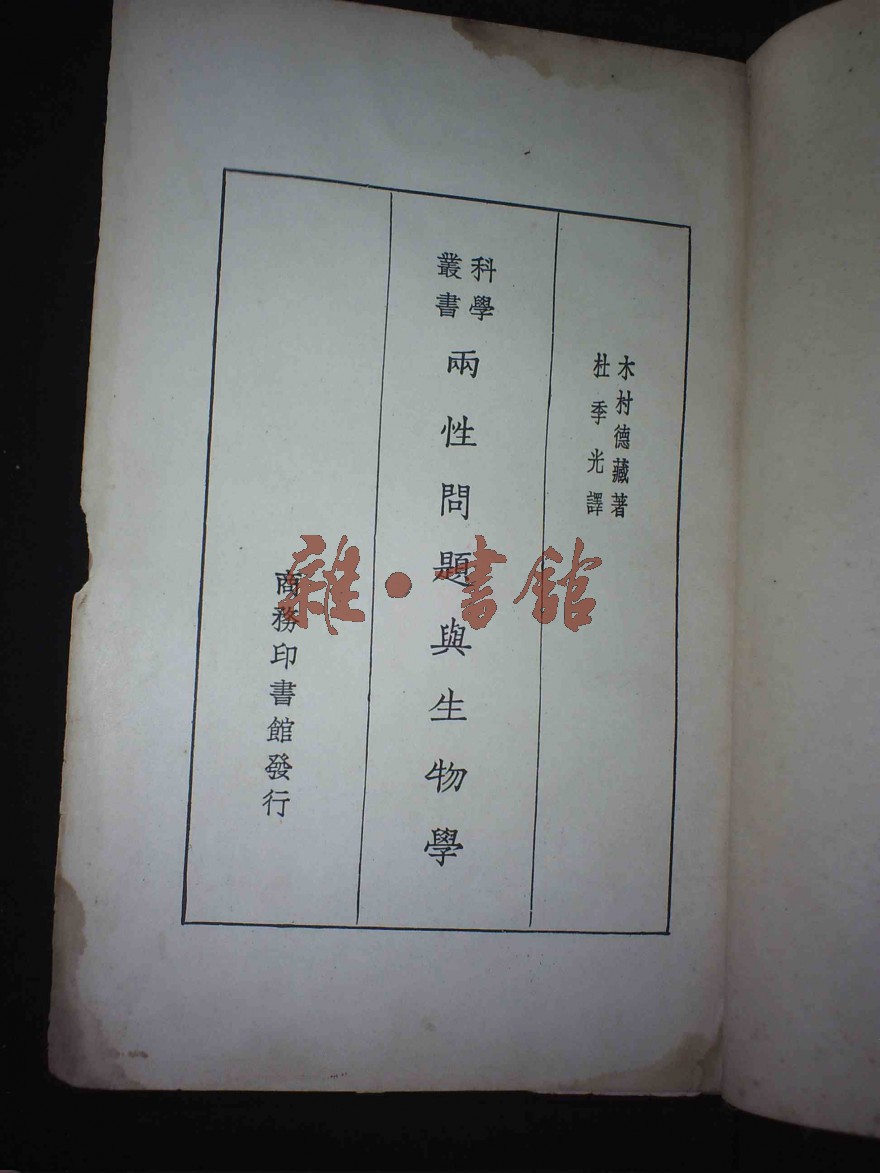 木村德藏著
杜季光譯
科學
叢書
兩性問題與生物學
商務印書館發行
雜·書館